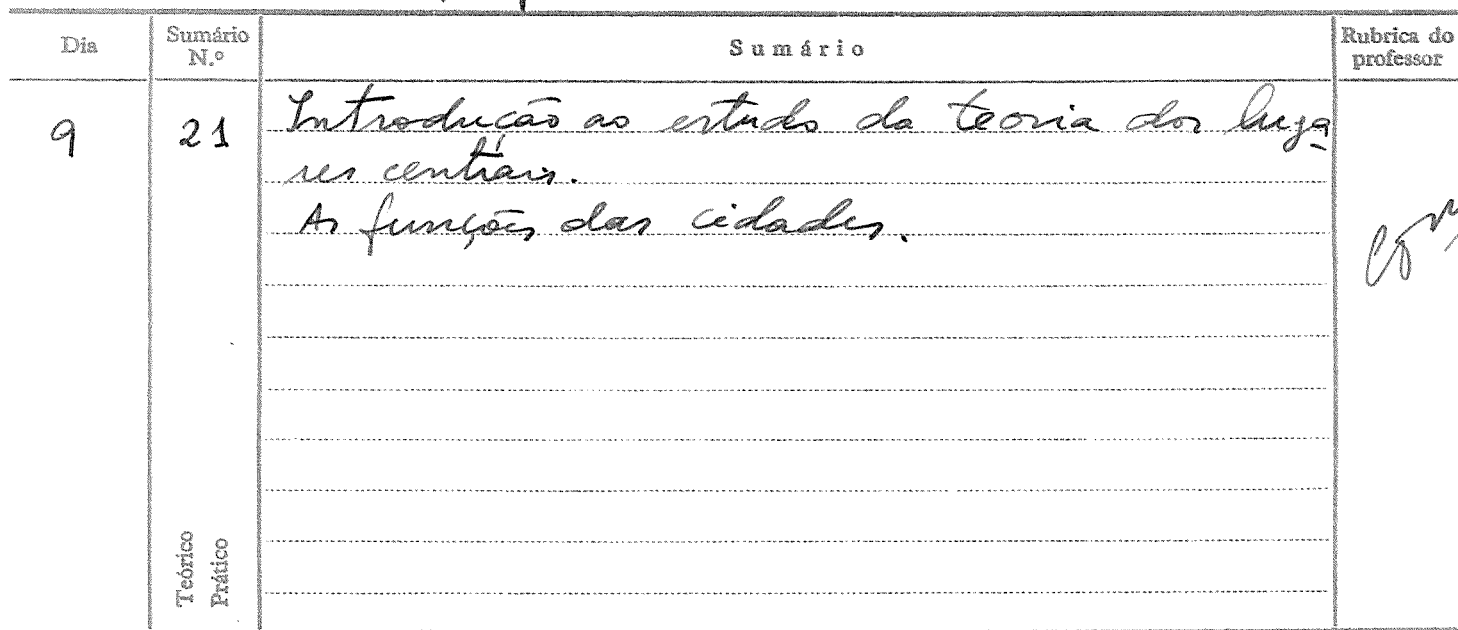 Dia
Sumário N.º
Sumário
Rubrica do professor
9
21
Introdução ao estudo da teoria dos luga
res centrais.
As funções das cidades.
Teórico
Prático